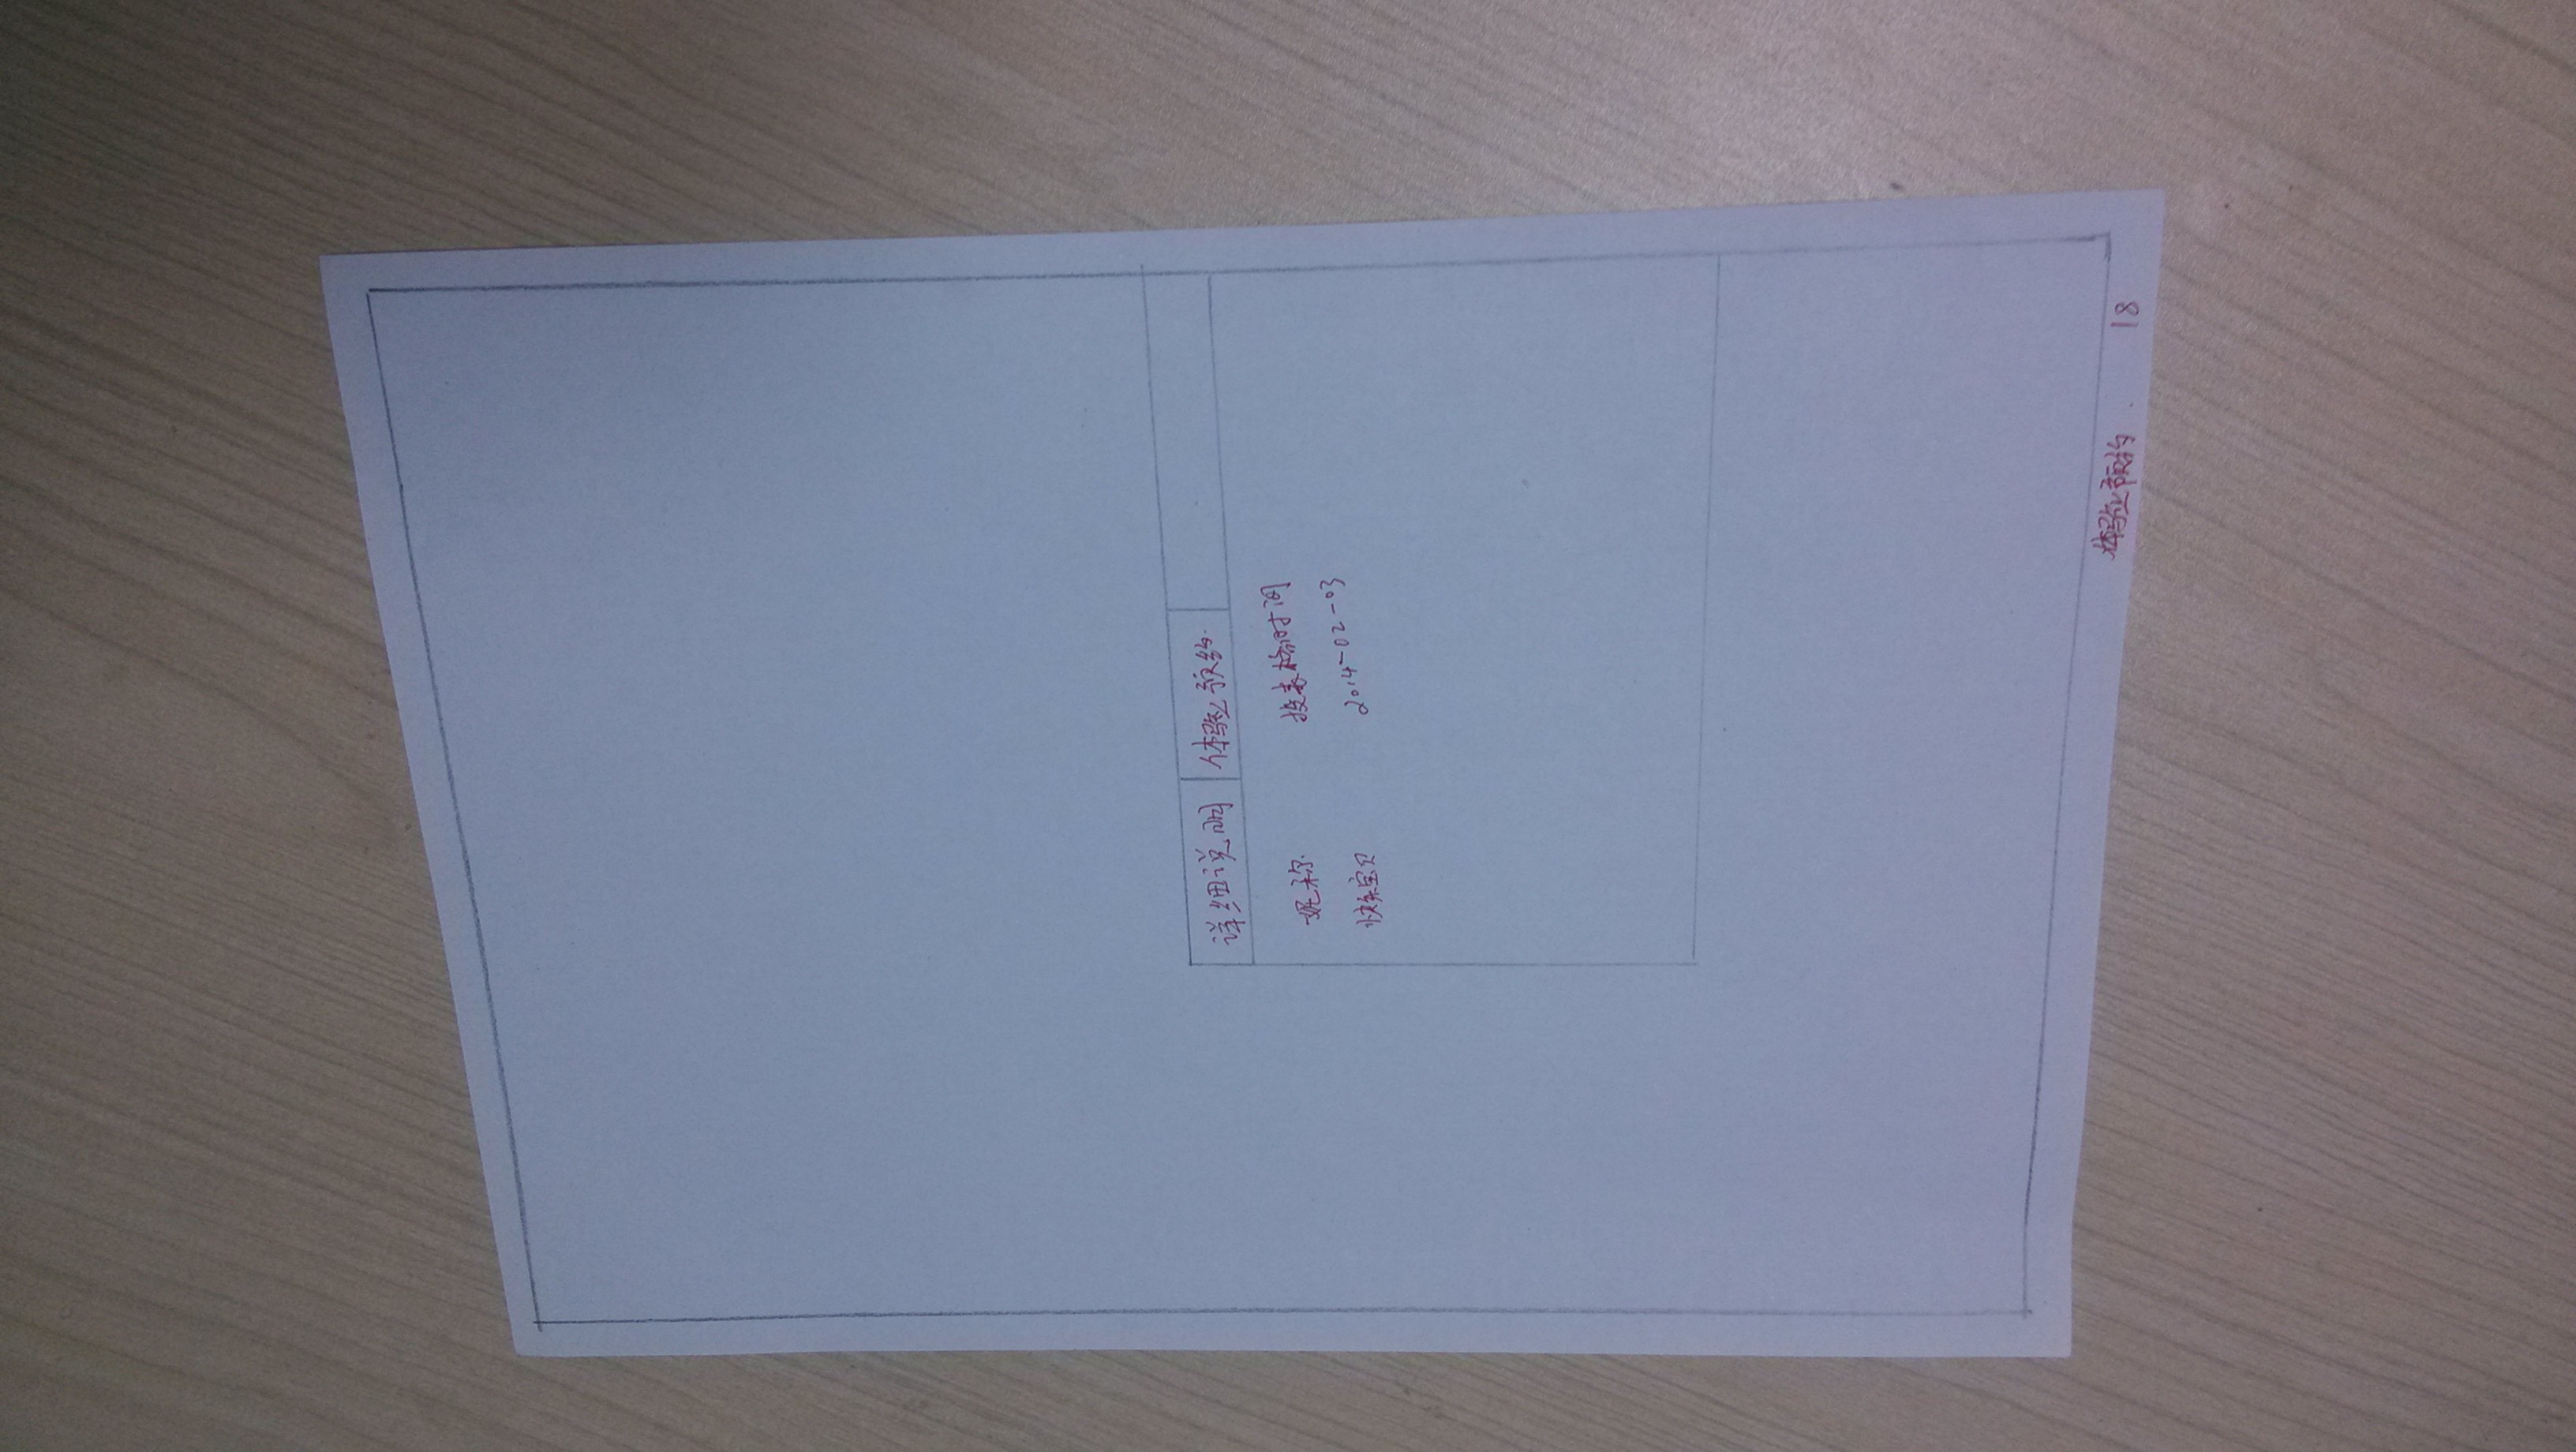 详细说明 体验预约.
昵称. 投表格时间
快乐宝贝 2014-02-03
体验预约. 18